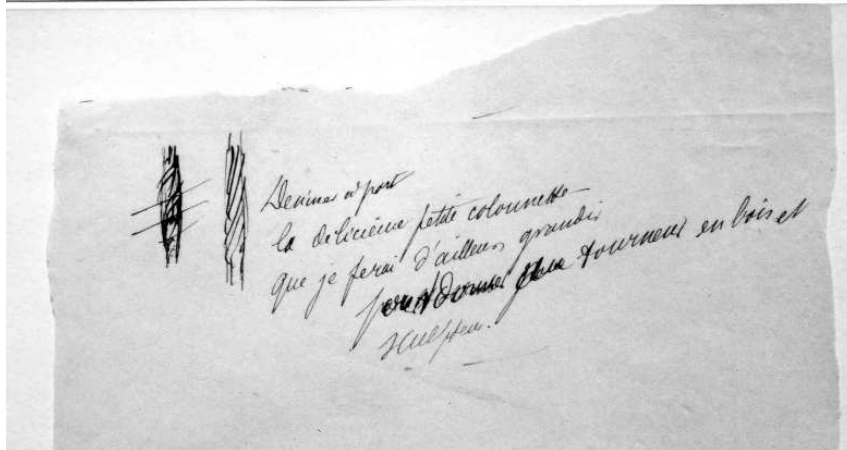 Dessiner à part
la délicieuse petite colonnette
que je ferai d'ailleurs grandir
pour donner tourneur en bois et
sculpteur.